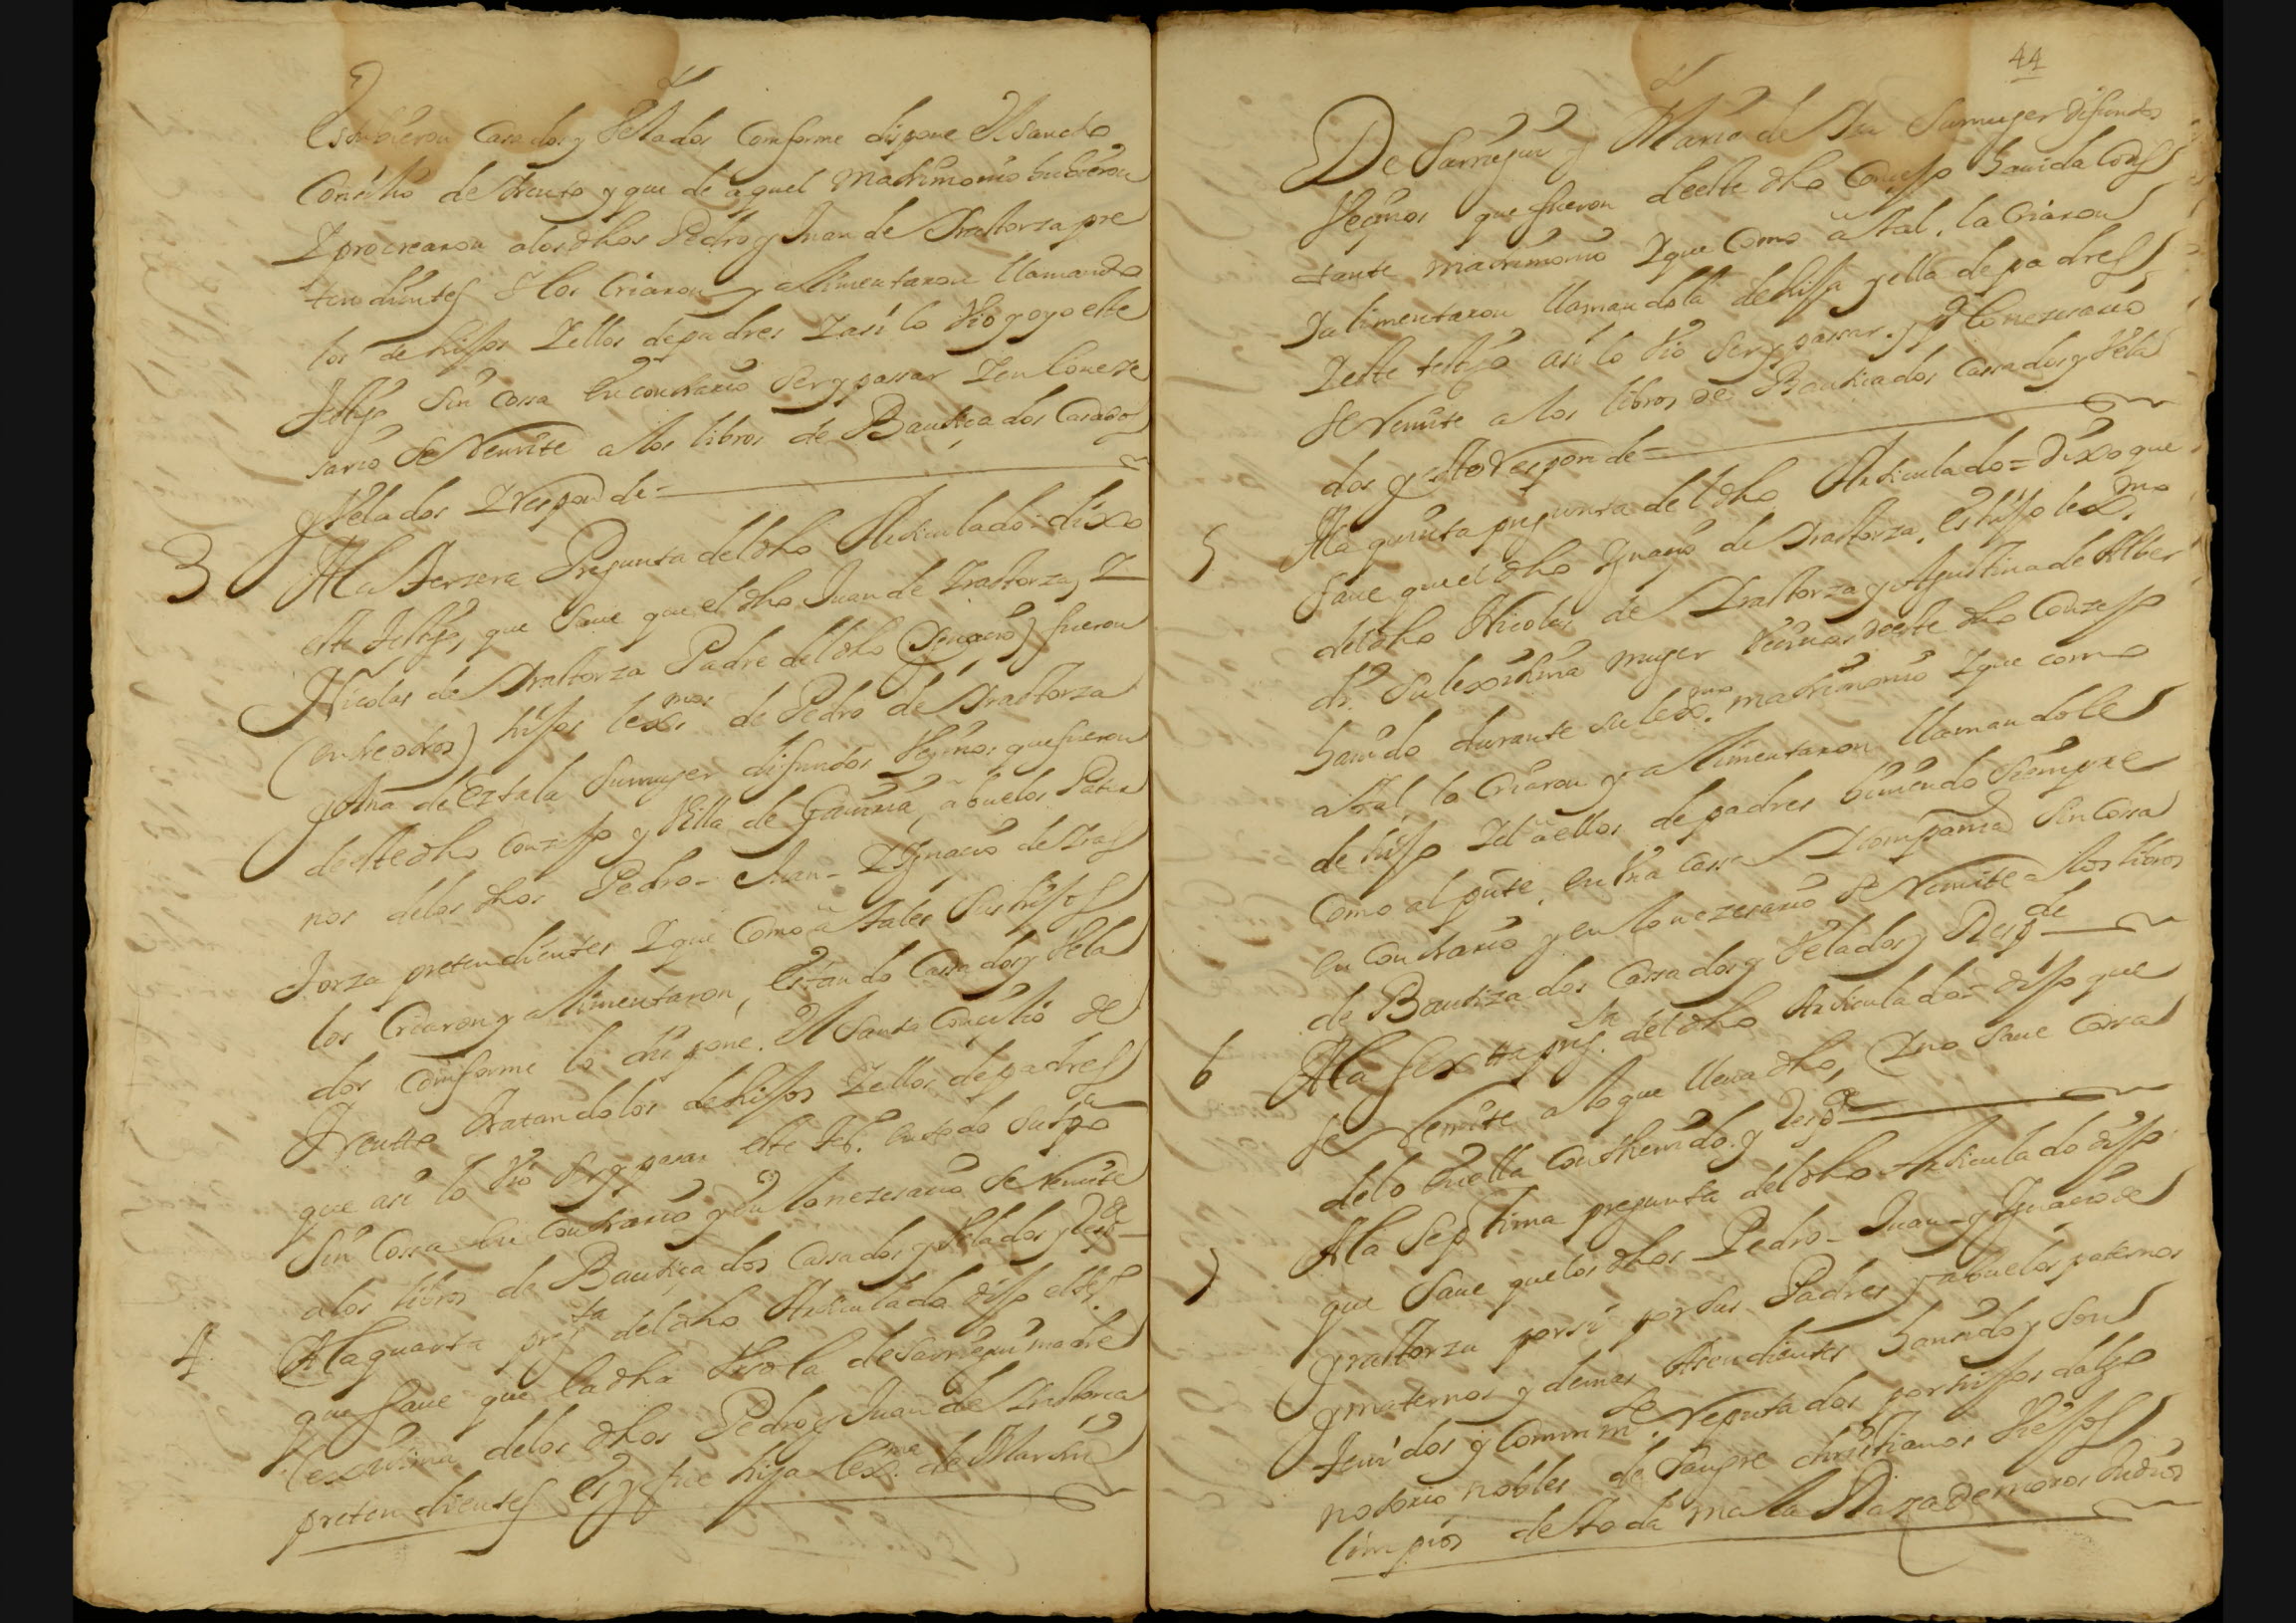 Estubieron Casados y Velados Comforme dispone el Sancto
Concilio de Trento y que de aquel matrimonio hubieron
Y procrearon a los dhos Pedro y Juan de Yraztorza pre
tendientes Y los Criaron y alimentaron llamando
los de hijos Y ellos de padres Y asi lo Vio y oyo este
Testigo Sin cossa En contrario Ser y passar Y en lo neze
sario Se Remite a los libros de Bautiçados Casados
y Velados Y responde =
3 A la terzera Pregunta del dho Articulado dixo
este testigo que Saue que el dho Juan de Yraztorza, Y
Nicolas de Yraztorza Padre del dho (Ygnacio) fueron
(entre otros) hijos lex.mos de Pedro de Yraztorza
y Ana de Eztala Su muger difuntos Vezinos que fueron
de este dho conzejo y Villa de Gauiria, abuelos Pater
nos de los dhos Pedro - Juan - Y Ygnacio de Yraz
torza pretendientes Y que Como a tales Sus hijos
los Criaron y alimentaron, estando Cassados y Vela
dos Comforme lo dispone el Santo Concilio de
Trento tratandolos de hijos Y ellos de padres
que asi lo Vio Ser y pasar este tt.º en todo Su tpo
Sin Cossa en Contrario y en lo nezesario Se Remite
a los libros de Bautiçados Cassados y Velados y Respde
4 A la quarta preg.ta del dho Articulado dijo el tt.º
que Saue que la dha Vrsola de Sarriegui madre
lexitima de los dhos Pedro y Juan de Yraztorza
pretendientes es y fue hija lex.ma de Martin
44
De Sarriegui y Maria de Su muger difuntos
Vezinos que fueron de este dho Conzejo hauida Cons
tante matrimonio Y que Como a tal, la Criaron
Y alimentaron llamandola de hija y ella de padres
Y este testigo asi lo Vio Ser y passar. y en lo nezesario
Se Remite a los libros de Bautiçados Cassados y Vela
dos y esto Responde =
5 A la quinta pregunta del dho Articulado = Dixo que
Saue que el dho Ygnacio de Yraztorza, es hijo lex.mo
del dho Nicolas de Yraztorza y Agustina de Alber
di Su lexitima muger Vezinos de este dho Conzejo
hauido durante su lex.mo matrimonio Y que como
a tal, lo Criaron y alimentaron llamandole
de hijo Y el a ellos de padres biuiendo Siempre
Como al pnte, en Vna Cassa Y compania Sin Cossa
en Contrario y en lo nezesario Se Remite a los libros
de Bautizados Cassados y Velados y Respde
6 A la Sextta preg.ta del dho Articulado = dijo que
Se Remite a lo que lleua dho, Y no Saue Cossa
de lo en ella Conthenido. y Respde
7 A la Septima pregunta del dho Articulado dijo
que Saue que los dhos Pedro - Juan - y Ygnacio de
Yraztorza por si y por Sus Padres y abuelos paternos
y maternos y demas Asendientes hauido y Son
tenidos y Commm.te Reputados por hijos dalgo
notorios nobles de Sangre christianos Viejos
limpios de toda mala Raza de moros Judios